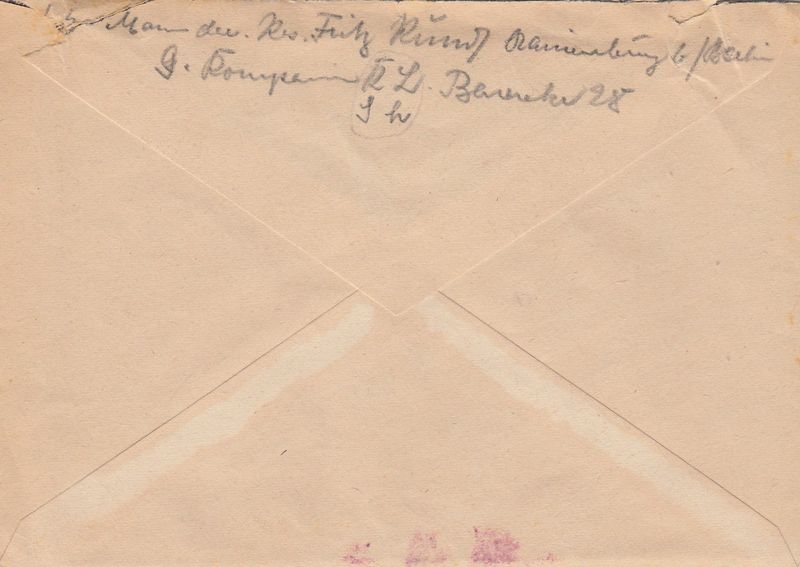 Mann der. Res. Fritz Kundt Oranienburg b/Berlin
9. Kompanie K L. Baracke 28